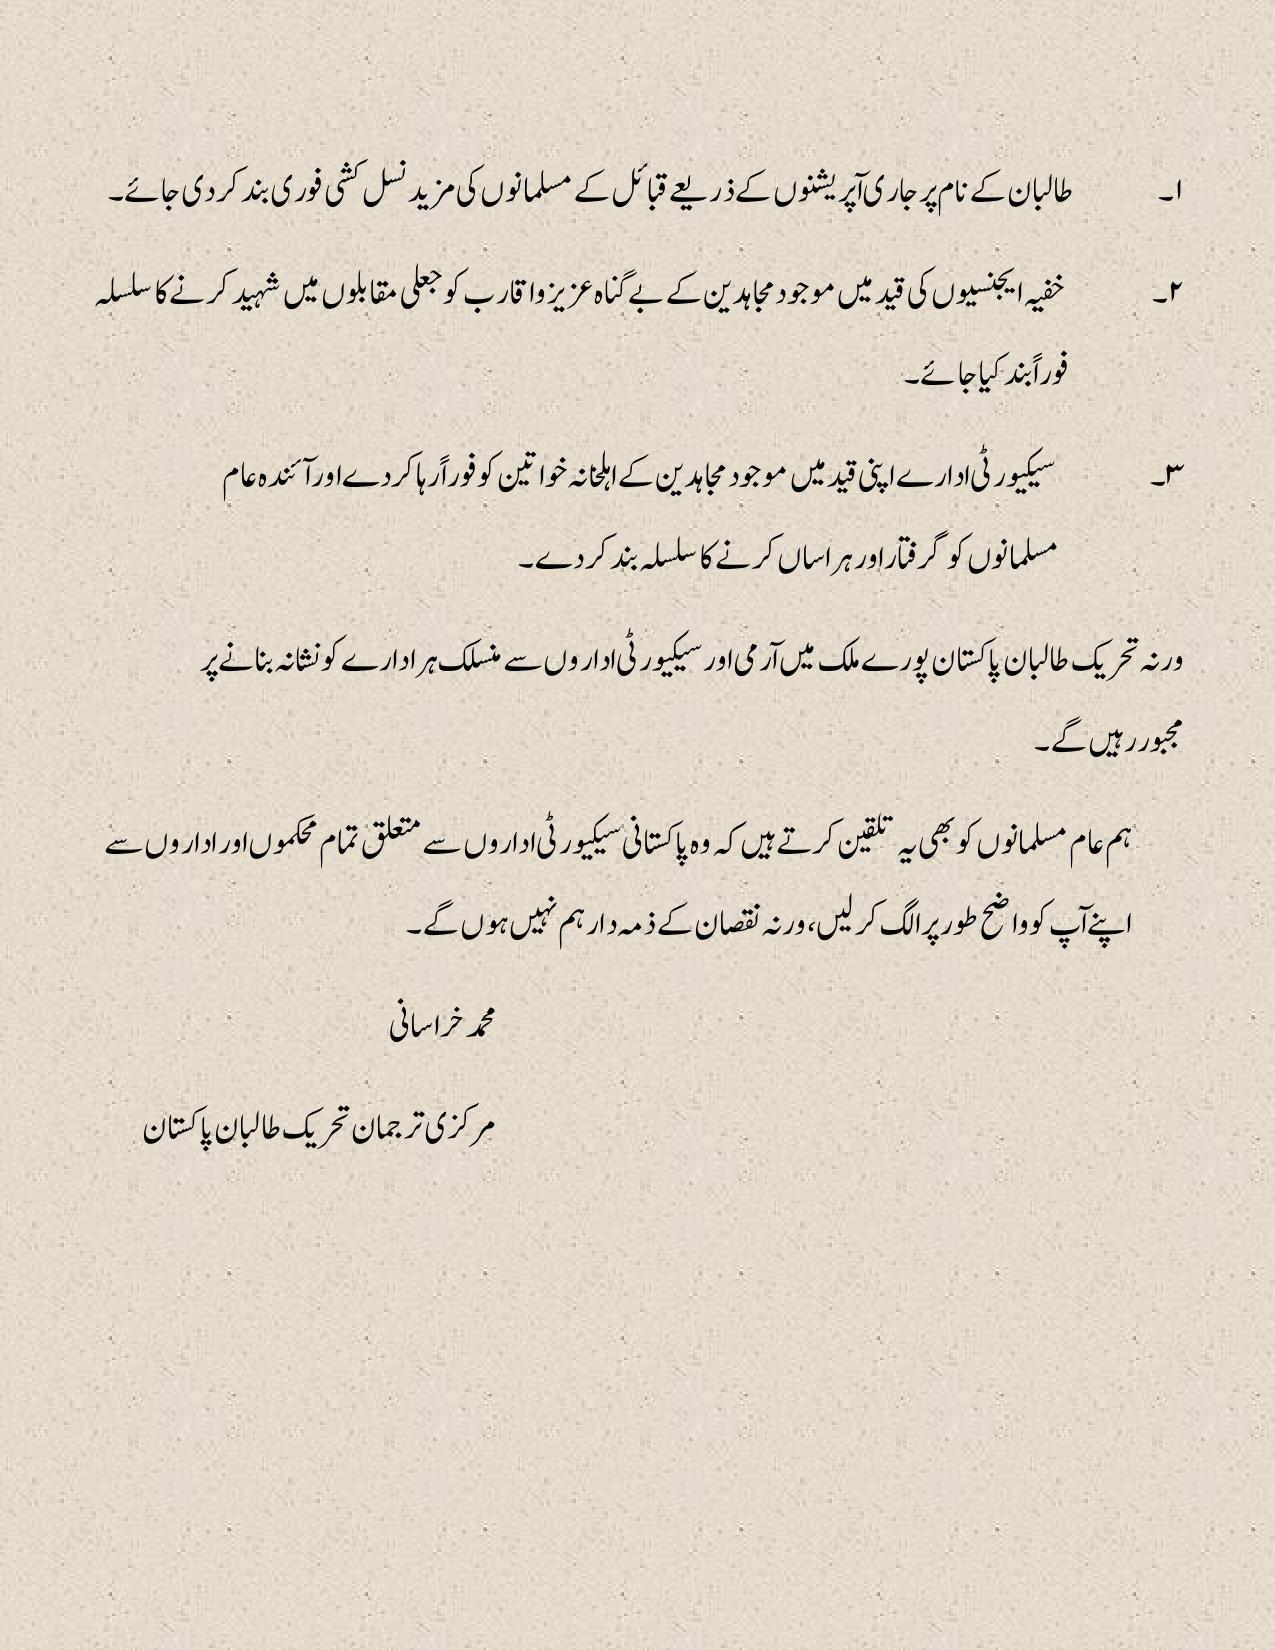 ۱۔ طالبان کے نام پر جاری آپریشنوں کے ذریعے قبائل کے مسلمانوں کی مزید نسل کشی فوری بند کر دی جائے۔
۲۔ خفیہ ایجنسیوں کی قید میں موجود مجاہدین کے بے گناہ عزیز واقارب کو جعلی مقابلوں میں شہید کرنے کا سلسلہ
فوراً بند کیا جائے۔
۳۔ سیکیورٹی ادارے اپنی قید میں موجود مجاہدین کے اہلخانہ خواتین کو فوراً رہا کر دے اور آئندہ عام
مسلمانوں کو گرفتار اور ہراساں کرنے کا سلسلہ بند کر دے۔
ورنہ تحریک طالبان پاکستان پورے ملک میں آرمی اور سیکیورٹی اداروں سے منسلک ہر ادارے کو نشانہ بنانے پر
مجبور رہیں گے۔
ہم عام مسلمانوں کو بھی یہ تلقین کرتے ہیں کہ وہ پاکستانی سیکیورٹی اداروں سے متعلق تمام محکموں اور اداروں سے
اپنے آپ کو واضح طور پر الگ کر لیں، ورنہ نقصان کے ذمہ دار ہم نہیں ہوں گے۔
محمد خراسانی
مرکزی ترجمان تحریک طالبان پاکستان